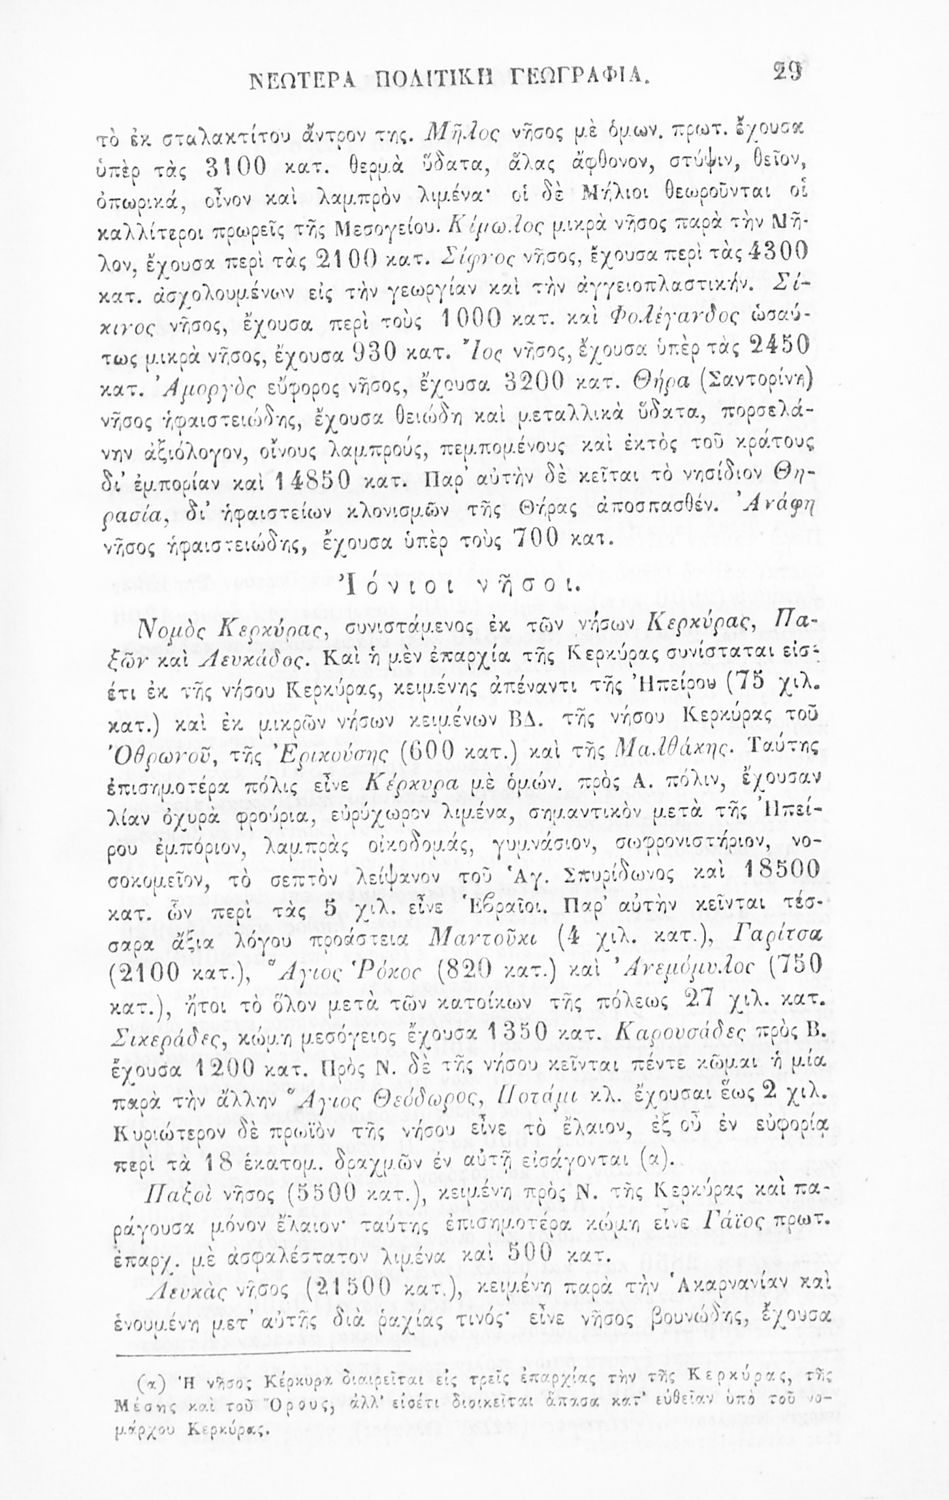 ΝΕΩΤΕΡΑ ΠΟΛΙΤΙΚΗ ΓΕΩΓΡΑΦΙΑ. 29
τὸ ἐκ σταλακτίτου ἄντρον της. Μῆλος νῆσος μὲ ὁμων. πρωτ. ἔχουσα
ὑπὲρ τὰς 3100 κατ. θερμὰ ὕδατα, ἅλας ἄφθονον, στύψιν, θεῖον,
ὀπωρικά, οἶνον καὶ λαμπρὸν λιμένα· οἱ δὲ Μήλιοι θεωροῦνται οἱ
καλλίτεροι πρωρεῖς τῆς Μεσογείου. Κίμωλος μικρὰ νῆσος παρὰ τὴν Μῆ-
λον, ἔχουσα περὶ τὰς 2100 κατ. Σίφνος νῆσος, ἔχουσα περὶ τὰς 4300
κατ. ἀσχολουμένων εἰς τὴν γεωργίαν καὶ τὴν ἀγγειοπλαστικήν. Σί-
κινος νῆσος, ἔχουσα περὶ τοὺς 1000 κατ. καὶ Φολέγανδος ὡσαύ-
τως μικρὰ νῆσος, ἔχουσα 930 κατ. Ἴος νῆσος, ἔχουσα ὑπὲρ τὰς 2450
κατ. Ἀμοργὸς εὔφορος νῆσος, ἔχουσα 3200 κατ. Θήρα (Σαντορίνη)
νῆσος ἡφαιστειώδης, ἔχουσα θειώδη καὶ μεταλλικὰ ὕδατα, πορσελά-
νην ἀξιόλογον, οἴνους λαμπρούς, πεμπομένους καὶ ἐκτὸς τοῦ κράτους
δι' ἐμπορίαν καὶ 14850 κατ. Παρ' αὐτὴν δὲ κεῖται τὸ νησίδιον Θη-
ρασία, δι' ἡφαιστείων κλονισμῶν τῆς Θήρας ἀποσπασθέν. Ἀνάφη
νῆσος ἡφαιστειώδης, ἔχουσα ὑπὲρ τοὺς 700 κατ.
Ἰόνιοι νῆσοι.
Νομὸς Κερκύρας, συνιστάμενος ἐκ τῶν νήσων Κερκύρας, Πα-
ξῶν καὶ Λευκάδος. Καὶ ἡ μὲν ἐπαρχία τῆς Κερκύρας συνίσταται εἰσ-
έτι ἐκ τῆς νήσου Κερκύρας, κειμένης ἀπέναντι τῆς Ἠπείρου (75 χιλ.
κατ.) καὶ ἐκ μικρῶν νήσων κειμένων ΒΔ. τῆς νήσου Κερκύρας τοῦ
Ὀθρωνοῦ, τῆς Ἐρικούσης (600 κατ.) καὶ τῆς Μαλθάκης. Ταύτης
ἐπισημοτέρα πόλις εἶνε Κέρκυρα μὲ ὁμών. πρὸς Α. πόλιν, ἔχουσαν
λίαν ὀχυρὰ φρούρια, εὐρύχωρον λιμένα, σημαντικὸν μετὰ τῆς Ἠπεί-
ρου ἐμπόριον, λαμπρὰς οἰκοδομάς, γυμνάσιον, σωφρονιστήριον, νο-
σοκομεῖον, τὸ σεπτὸν λείψανον τοῦ Ἁγ. Σπυρίδωνος καὶ 18500
κατ. ὧν περὶ τὰς 5 χιλ. εἶνε Ἑβραῖοι. Παρ' αὐτὴν κεῖνται τέσ-
σαρα ἄξια λόγου προάστεια Μαντοῦκι (4 χιλ. κατ.), Γαρίτσα
(2100 κατ.), Ἅγιος Ῥόκος (820 κατ.) καὶ Ἀνεμόμυλος (750
κατ.), ἤτοι τὸ ὅλον μετὰ τῶν κατοίκων τῆς πόλεως 27 χιλ. κατ.
Σικεράδες, κώμη μεσόγειος ἔχουσα 1350 κατ. Καρουσάδες πρὸς Β.
ἔχουσα 1200 κατ. Πρὸς Ν. δὲ τῆς νήσου κεῖνται πέντε κῶμαι ἡ μία
παρὰ τὴν ἄλλην Ἅγιος Θεόδωρος, Ποτάμι κλ. ἔχουσαι ἕως 2 χιλ.
Κυριώτερον δὲ πρωϊὸν τῆς νήσου εἶνε τὸ ἔλαιον, ἐξ οὗ ἐν εὐφορίᾳ
περὶ τὰ 18 ἑκατομ. δραχμῶν ἐν αὐτῇ εἰσάγονται (α).
Παξοὶ νῆσος (5500 κατ.), κειμένη πρὸς Ν. τῆς Κερκύρας καὶ πα-
ράγουσα μόνον ἔλαιον· ταύτης ἐπισημοτέρα κώμη εἶνε Γάϊος πρωτ.
ἐπαρχ. μὲ ἀσφαλέστατον λιμένα καὶ 500 κατ.
Λευκὰς νῆσος (21500 κατ.), κειμένη παρὰ τὴν Ἀκαρνανίαν καὶ
ἑνουμένη μετ' αὐτῆς διὰ ῥαχίας τινός· εἶνε νῆσος βουνώδης, ἔχουσα
(α) Ἡ νῆσος Κέρκυρα διαιρεῖται εἰς τρεῖς ἐπαρχίας τὴν τῆς Κερκύρας, τῆς
Μέσης καὶ τοῦ Ὄρους, ἀλλ' εἰσέτι διοικεῖται ἅπασα κατ' εὐθεῖαν ὑπὸ τοῦ νο-
μάρχου Κερκύρας.